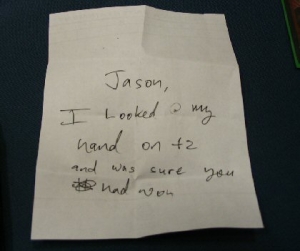 Jason,
I Looked @ my
hand on t2
and was sure you
had won